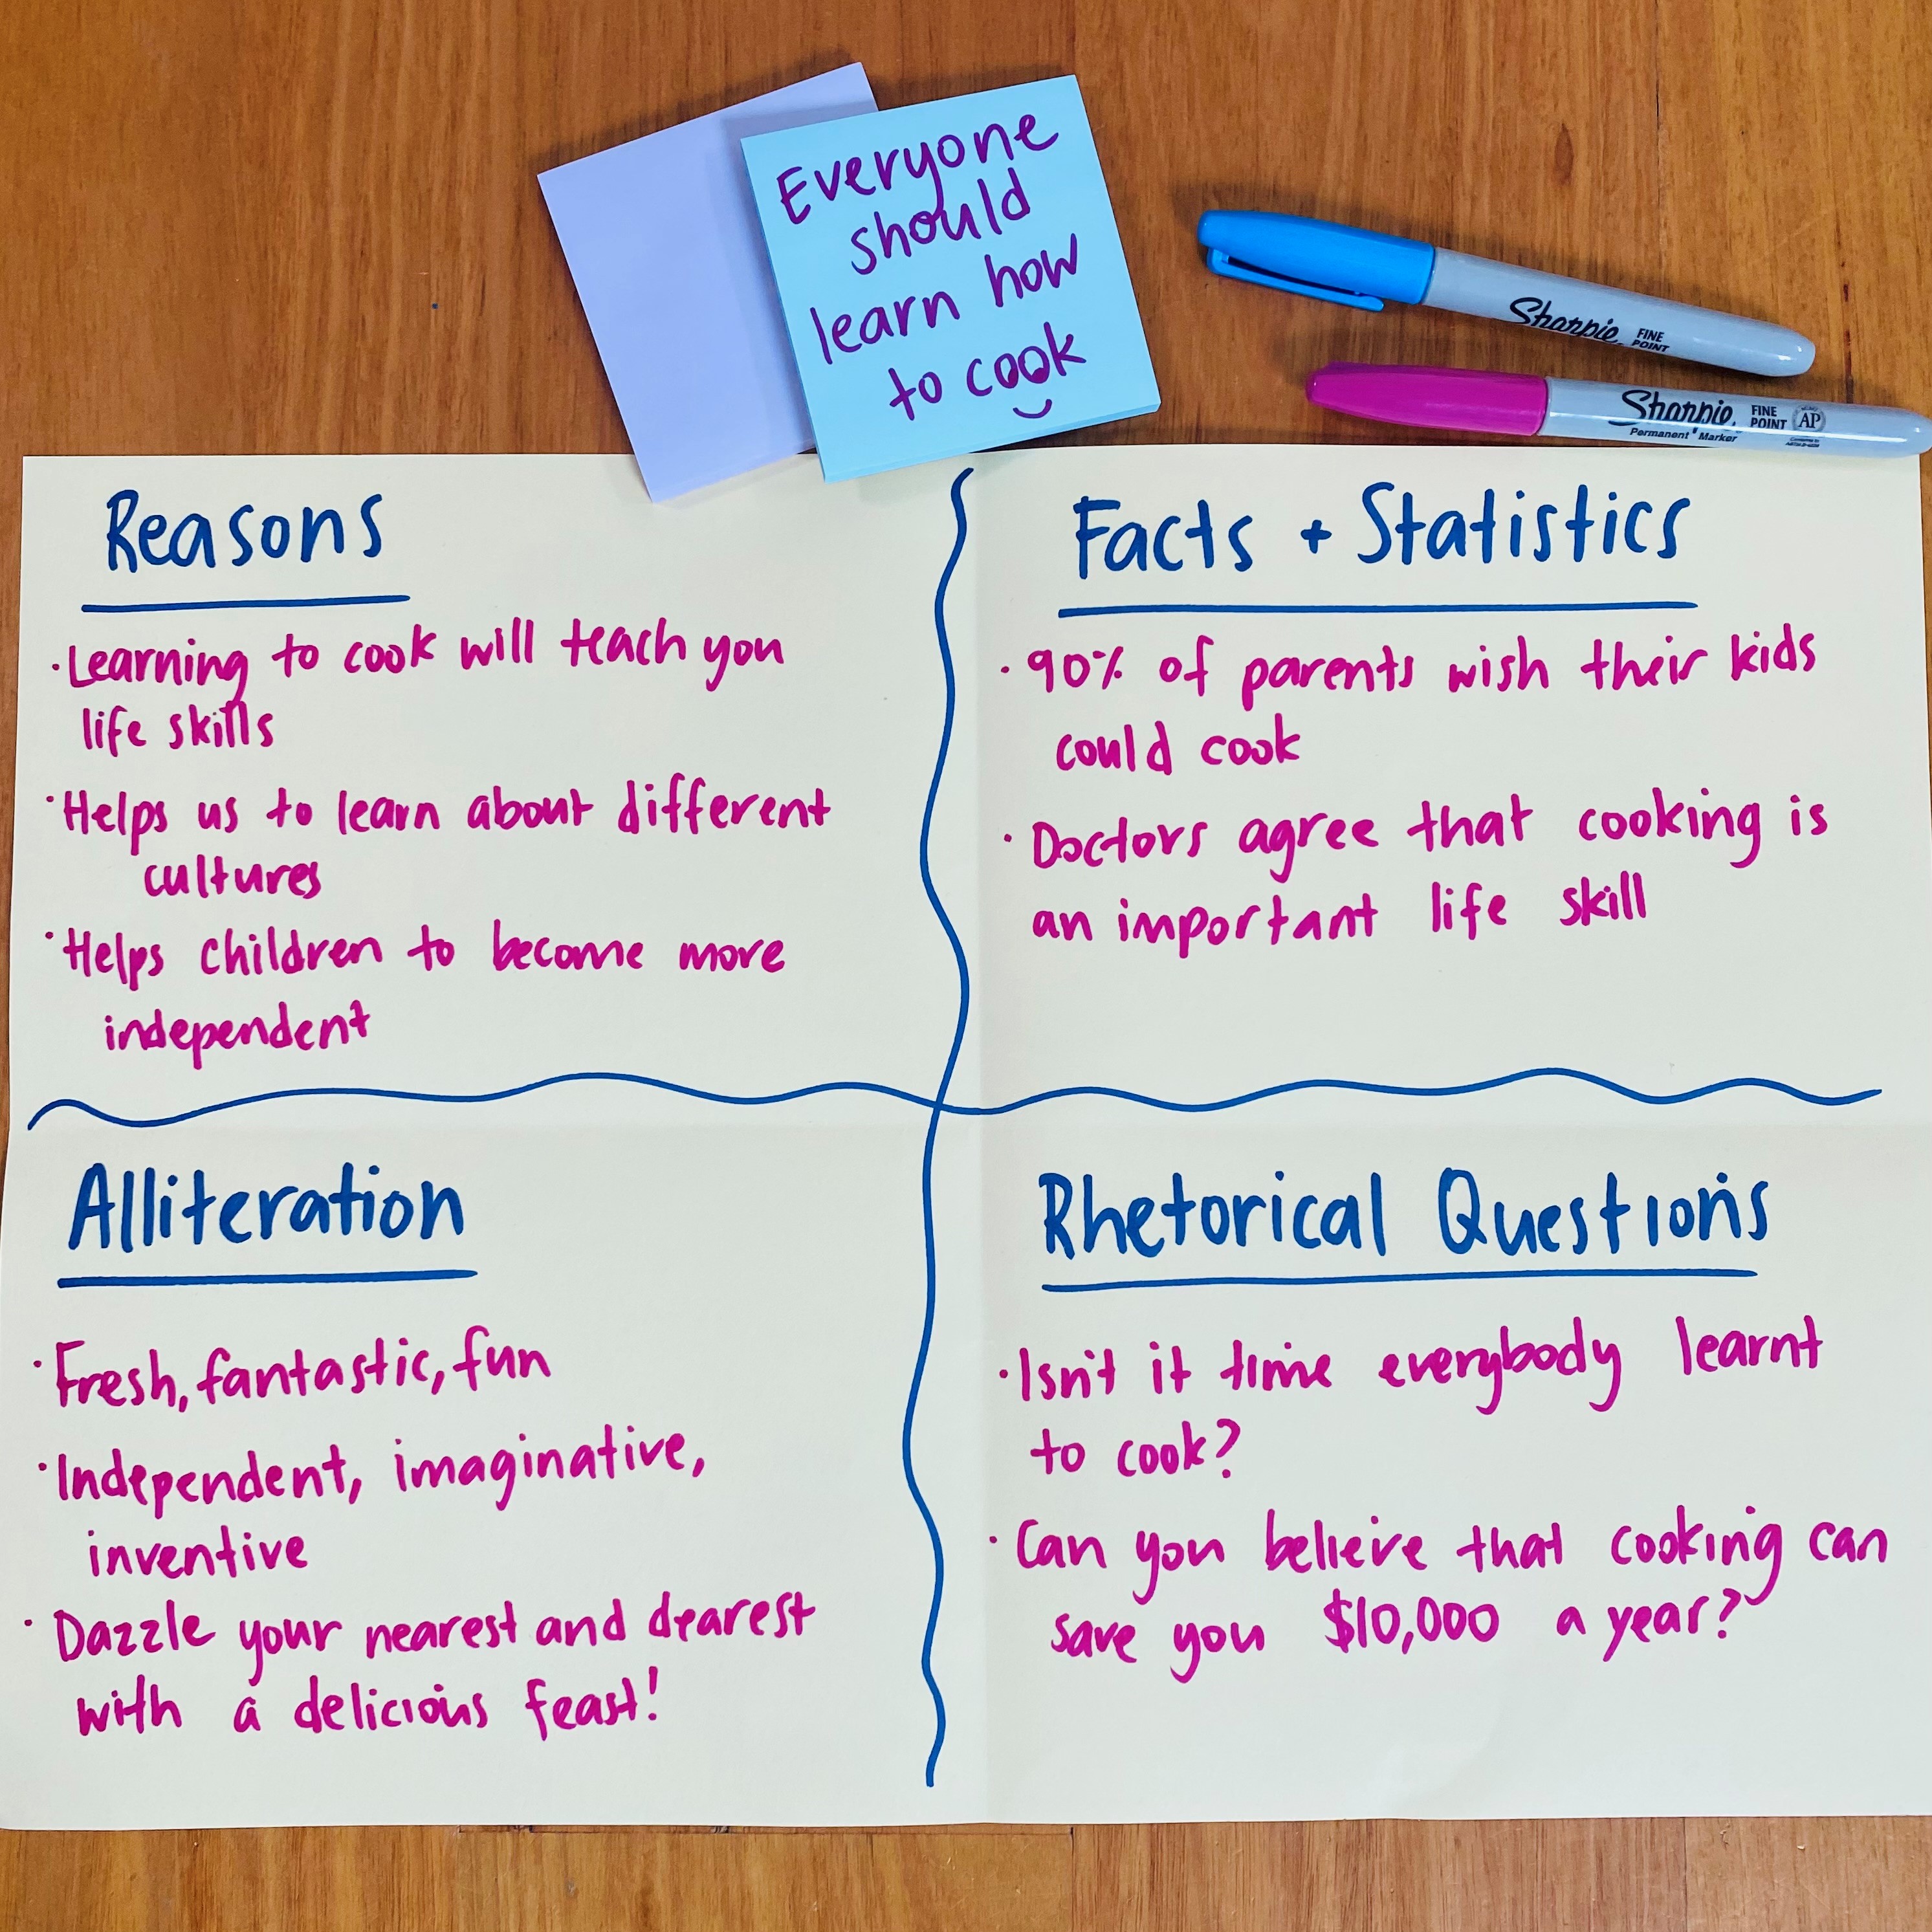 Everyone
should
learn how
to cook
Sharpie FINE POINT
Sharpie FINE POINT AP
Permanent Marker
Reasons
·Learning to cook will teach you
life skills
·Helps us to learn about different
cultures
·Helps children to become more
independent
Facts + Statistics
·90% of parents wish their kids
could cook
·Doctors agree that cooking is
an important life skill
Alliteration
·Fresh, fantastic, fun
·Independent, imaginative,
inventive
·Dazzle your nearest and dearest
with a delicious feast!
Rhetorical Questions
·Isn't it time everybody learnt
to cook?
·Can you believe that cooking can
save you $10,000 a year?